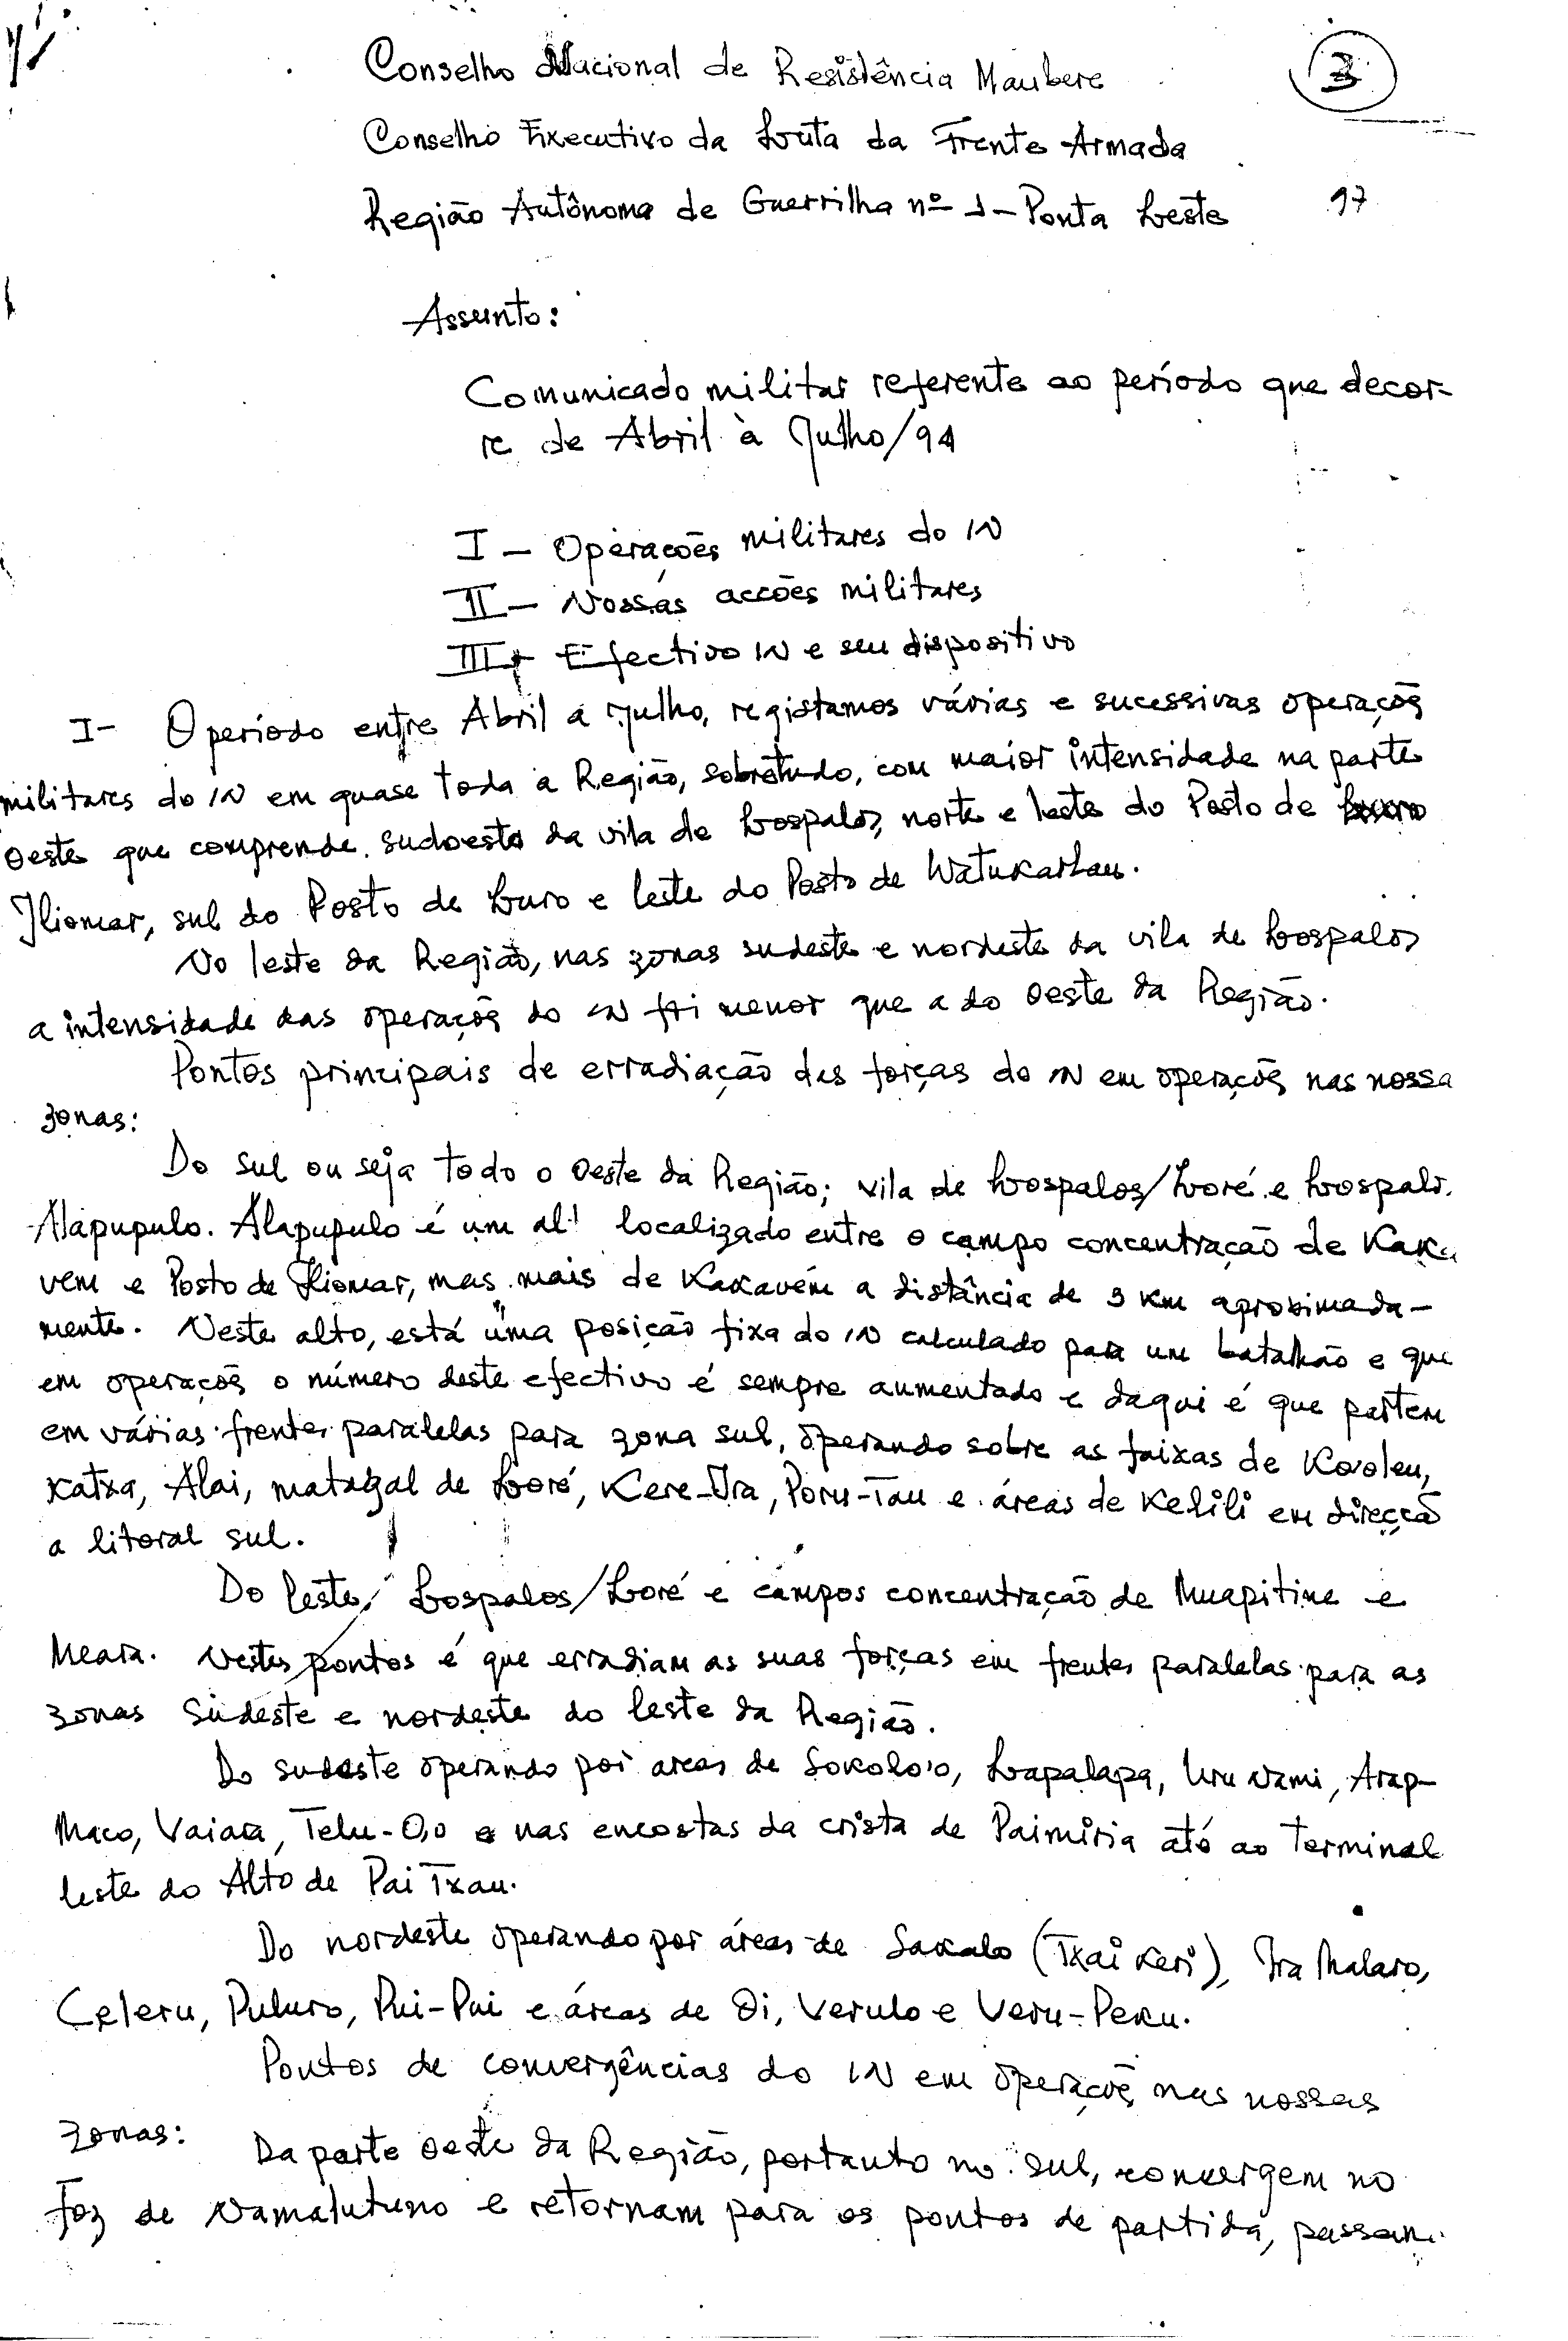 Conselho Nacional de Resistência Maubere
3
Conselho Executivo da Luta da Frente Armada
Região Autônoma de Guerrilha nº 1 – Ponta Leste
97
Assunto:
Comunicado militar referente ao período que decor-
re de Abril à Julho/94
I – Operações militares do IN
II – Nossas acções militares
III – Efectivo IN e seu dispositivo
I – O período entre Abril a Julho, registamos várias e sucessivas operações
militares do IN em quase toda a Região, sobretudo, com maior intensidade na parte
oeste que comprende sudoeste da vila de Lospalos, norte e leste do Posto de
Iliomar, sul do Posto de Luro e leste do Posto de Watukarbau.
No leste da Região, nas zonas sudeste e nordeste da vila de Lospalos
a intensidade das operações do IN foi menor que a do Oeste da Região.
Pontos principais de erradiação das forças do IN em operações nas nossa
zonas:
Do sul ou seja todo o oeste da Região; vila de Lospalos/Loré e Lospalos
Alapupulo. Alapupulo é um alt localizado entre o campo concentração de Kaka
vem e Posto de Iliomar, mas mais de Kakavem a distância de 3 km aproximada-
mente. Neste alto, está uma posição fixa do IN calculado para um batalhão e que
em operações o número deste efectivo é sempre aumentado e daqui é que partem
em várias frentes paralelas para zona sul, operando sobre as faixas de Kovoleu,
Katxa, Alai, matagal de Loré, Kere-Ira, Poru-Tau e áreas de Kelili em direcçã
a litoral sul.
Do leste, Lospalos/Loré e campos concentração de Muapitine e
Meara. Nestes pontos é que erradiam as suas forças em frentes paralelas para as
zonas sudeste e nordeste do leste da Região.
Do sudeste operando por areas de Sokolo'o, Lapalapa, Uru Nami, Arap-
Maco, Vaiara, Telu-O,o e nas encostas da crista de Paimiria até ao terminal
leste do Alto de Pai Txau.
Do nordeste operando por áreas de Sakalo (Txai Keri), Ira Malaro,
Celeru, Puluro, Pui-Pui e áreas de Oi, Verulo e Veru-Peku.
Pontos de convergências do IN em operações nas nossas
zonas:
Da parte oeste da Região, portanto no sul, convergem no
Foz de Namalutuno e retornam para os pontos de partida, passan